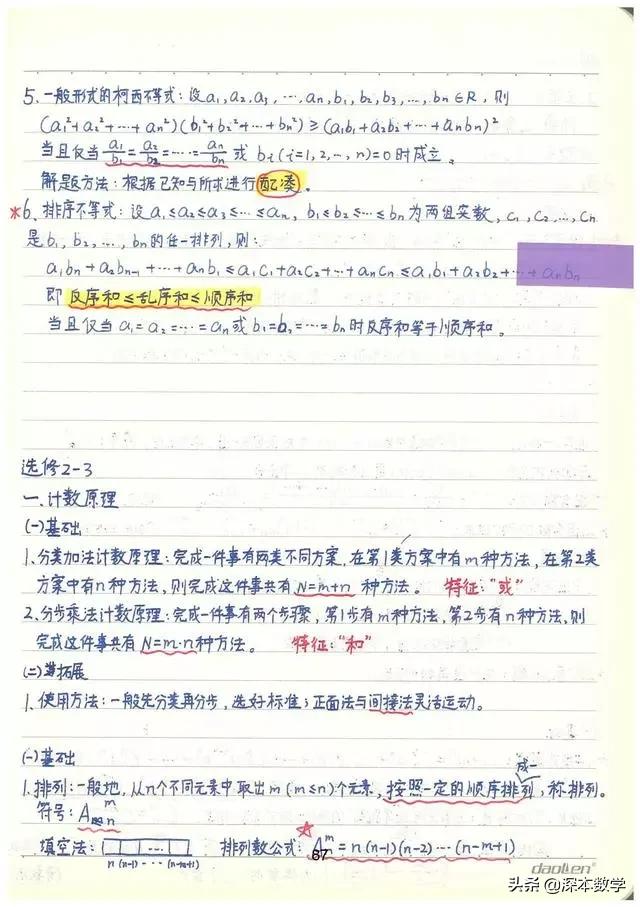 5、一般形式的柯西不等式：设a₁,a₂,a₃,…,aₙ,b₁,b₂,b₃,…,bₙ∈R，则
(a₁²+a₂²+…+aₙ²)(b₁²+b₂²+…+bₙ²)≥(a₁b₁+a₂b₂+…+aₙbₙ)²
当且仅当 a₁/b₁=a₂/b₂=……=aₙ/bₙ 或 bᵢ(i=1,2,…,n)=0时成立。
解题方法：根据已知与所求进行配凑。
*6、排序不等式：设a₁≤a₂≤a₃≤…≤aₙ, b₁≤b₂≤…≤bₙ为两组实数，c₁,c₂…,cₙ
是b₁,b₂,…,bₙ的任一排列，则：
a₁bₙ+a₂bₙ₋₁+…+aₙb₁≤a₁c₁+a₂c₂+…+aₙcₙ≤a₁b₁+a₂b₂+…+aₙbₙ
即 反序和≤乱序和≤顺序和
当且仅当a₁=a₂=…=aₙ或b₁=b₂=…=bₙ时反序和等于顺序和。
选修2-3
一、计数原理
(一)基础
1、分类加法计数原理：完成一件事有两类不同方案，在第1类方案中有m种方法，在第2类
方案中有n种方法，则完成这件事共有N=m+n 种方法。 特征：“或”
2、分步乘法计数原理：完成一件事有两个步骤，第1步有m种方法，第2步有n种方法，则
完成这件事共有N=m·n种方法。 特征：“和”
(二)拓展
1、使用方法：一般先分类再分步，选好标准；正面法与间接法灵活运动。
(一)基础
成一
1、排列：一般地，从n个不同元素中取出m(m≤n)个元素，按照一定的顺序排列，称排列。
符号：Aₙᵐ
填空法： … 排列数公式：Aᵐ=n(n-1)(n-2)…(n-m+1)
n (n-1) - … (n-m+1)
67
daolien
头条@深本数学